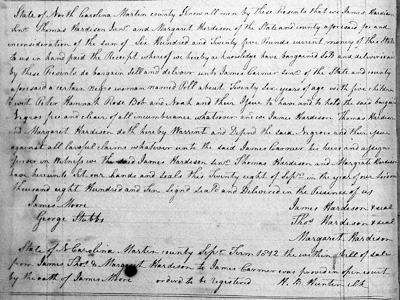 State of North Carolina Martin county Know all men by these Presents that we James Hardison
Senr. Thomas Hardison Senr. and Margaret Hardison of the State and county aforesaid for and
inconsideration of the sum of Six Hundred and Twenty five Pounds current money of this State
to us in hand paid the Receipt whereof we hereby acknowledge have bargained sold and delivered and
by these Presents do bargain sell and deliver unto James Carmer Senr. of the State and county
aforesaid a certain negro woman named Pell about Twenty six years of age with five children
to wit Peter Hannah Rose Bob and Noah and their Issue to have and to hold the said bargained
Negroes free and clear of all incumbrance whatever and we James Hardison Thomas Hardison
and Margaret Hardison do hereby Warrent and Defend the said Negroes and their Issue
against all lawful claims whatever unto the said James Carmer his heirs and assigns
forever in Witness we the said James Hardison Senr. Thomas Hardison and Margret Hardison
have hereunto set our hands and seals this Twenty eight of Septr. in the year of our Lord one
thousand eight Hundred and Ten Signd seald and Delivered in the Presence of us
James Moore James Hardison seal
George Stubbs Thos. Hardison seal
Margaret Hardison
State of N Carolina Martin county Septr. Term 1812 the within bill of sale
from James Thos. & Margaret Hardison to James Carmer was proved in open court
by the oath of James Moore ordered to be registered H. B. Hunter clk